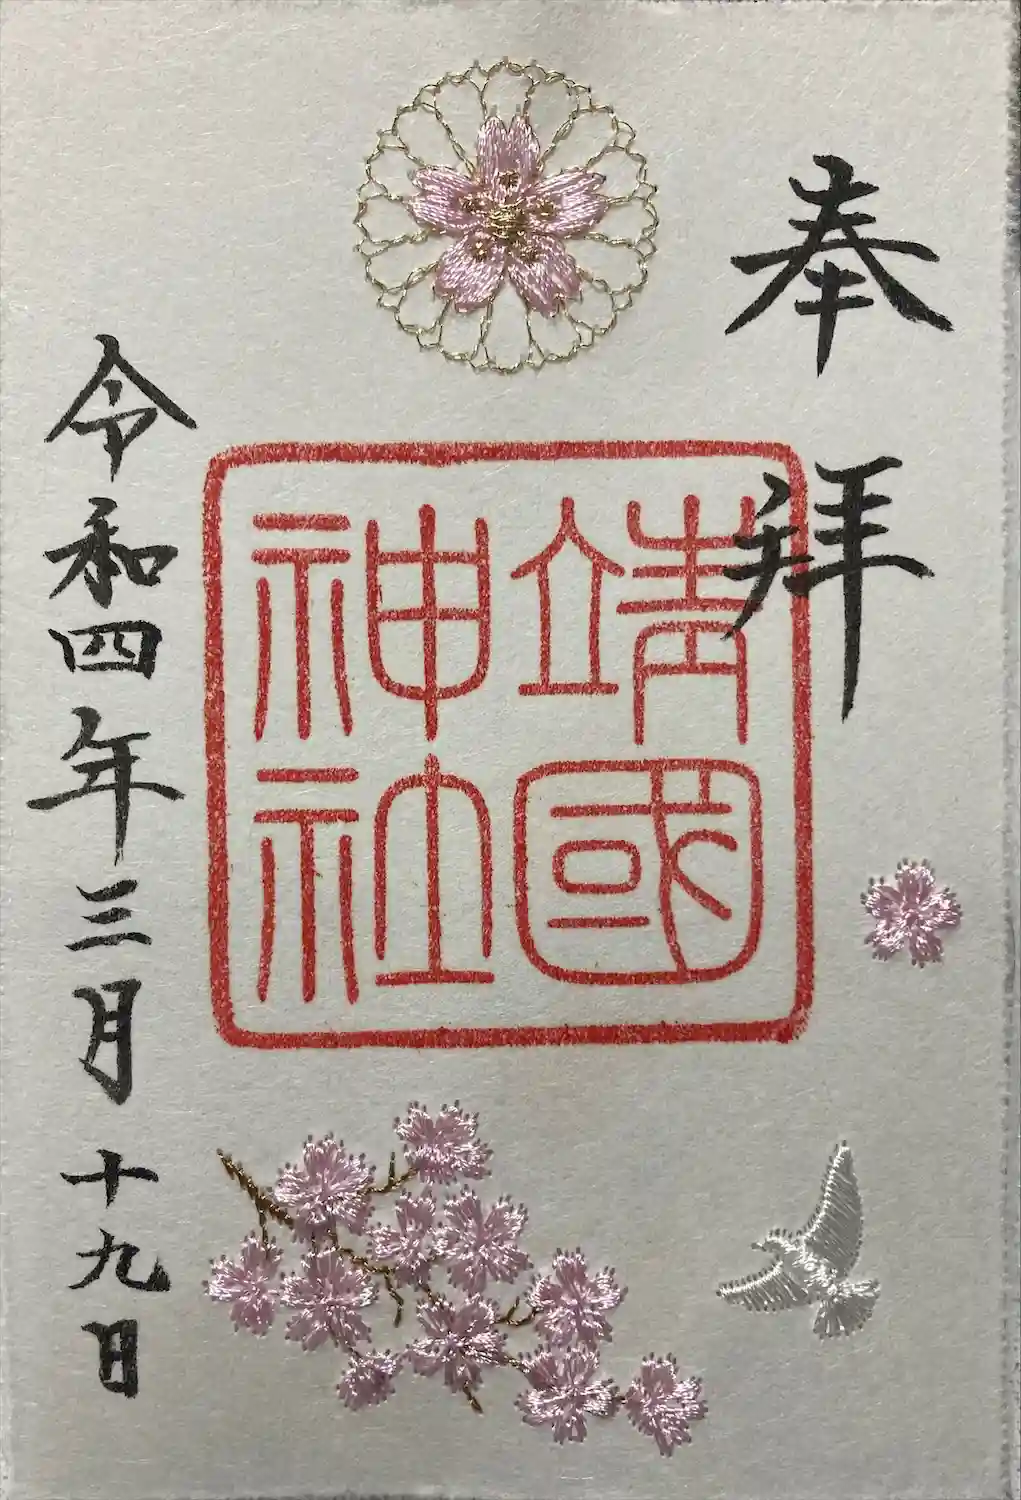 奉拝
靖國
神社
令和四年三月十九日